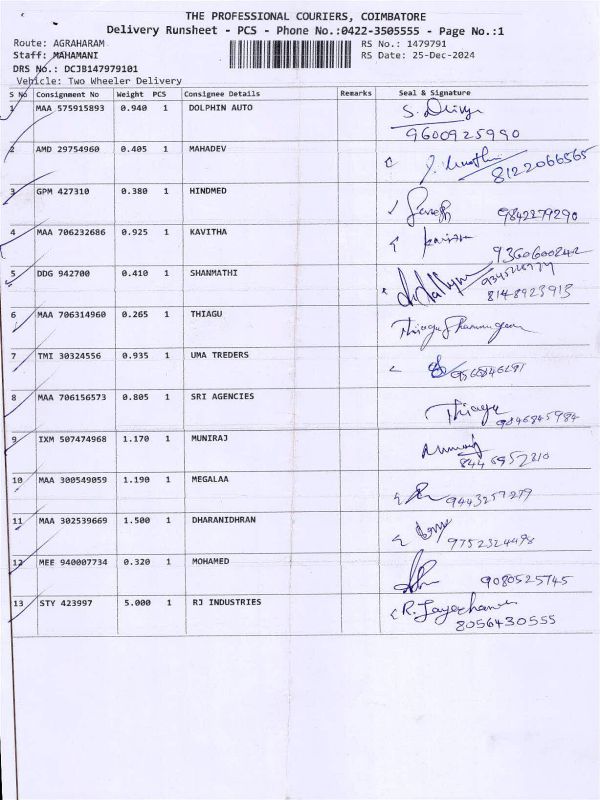 THE PROFESSIONAL COURIERS, COIMBATORE
Delivery Runsheet - PCS - Phone No.:0422-3505555 - Page No.:1
Route: AGRAHARAM
RS No.: 1479791
Staff: MAHAMANI
RS Date: 25-Dec-2024
DRS No.: DCJB147979101
Vehicle: Two Wheeler Delivery
S No Consignment No Weight PCS Consignee Details Remarks Seal & Signature
1 MAA 575915893 0.940 1 DOLPHIN AUTO
9600925990
2 AMD 29754960 0.405 1 MAHADEV
8122066565
3 GPM 427310 0.380 1 HINDMED
9842279290
4 MAA 706232686 0.925 1 KAVITHA
9360600242
5 DDG 942700 0.410 1 SHANMATHI
8148923913
6 MAA 706314960 0.265 1 THIAGU
7 TMI 30324556 0.935 1 UMA TREDERS
8 MAA 706156573 0.805 1 SRI AGENCIES
Thiagu
9046845984
9 IXM 507474968 1.170 1 MUNIRAJ
10 MAA 300549059 1.190 1 MEGALAA
9443257279
11 MAA 302539669 1.500 1 DHARANIDHRAN
9752324498
12 MEE 940007734 0.320 1 MOHAMED
9080525745
13 STY 423997 5.000 1 RJ INDUSTRIES
8056430555